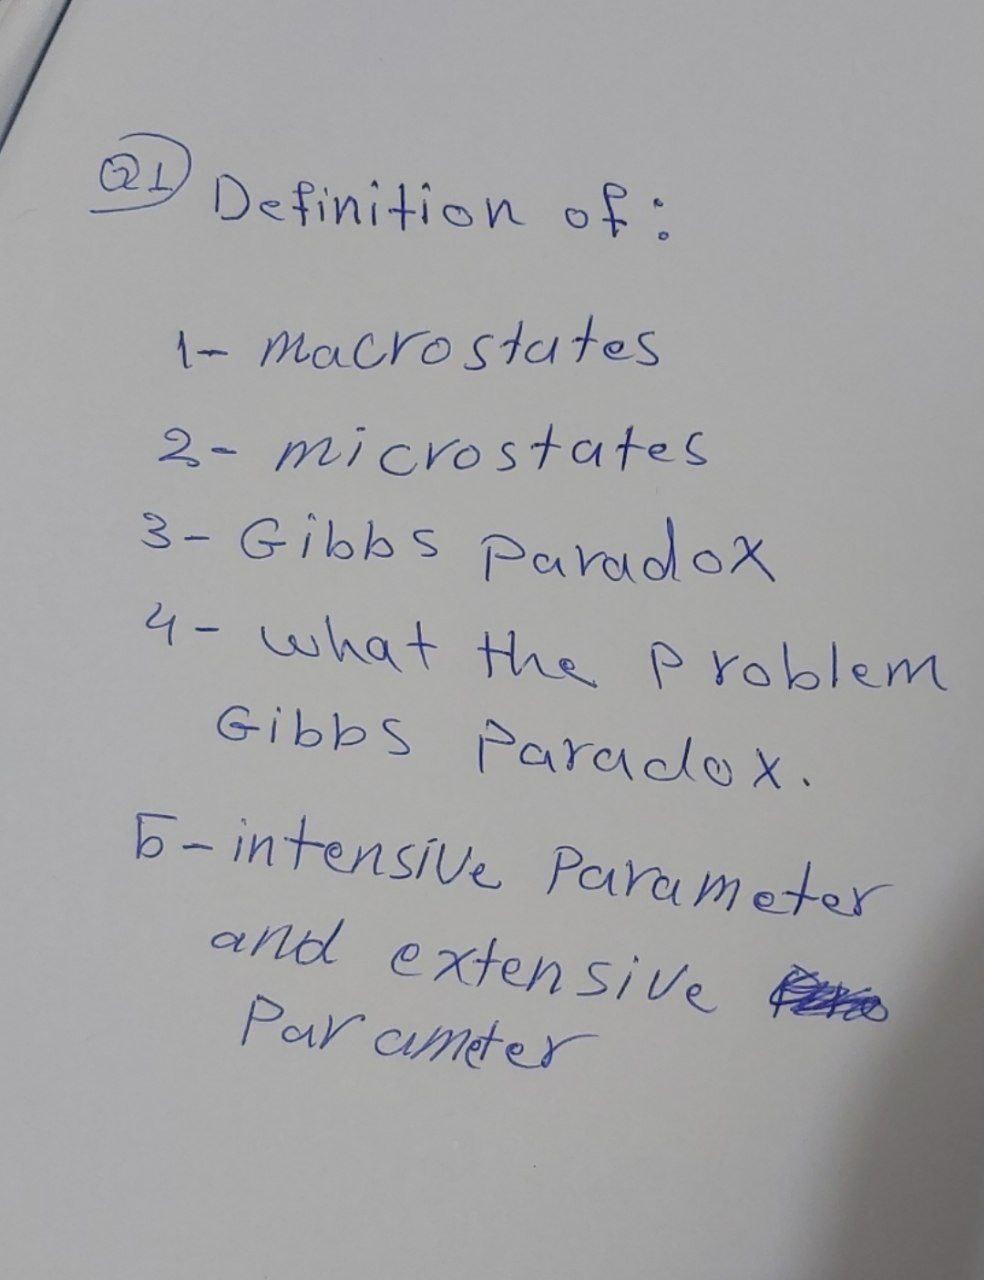 Q1 Definition of:
1- Macrostates
2- microstates
3- Gibbs Paradox
4- what the Problem
Gibbs Paradox.
5- intensive Parameter
and extensive
Parameter